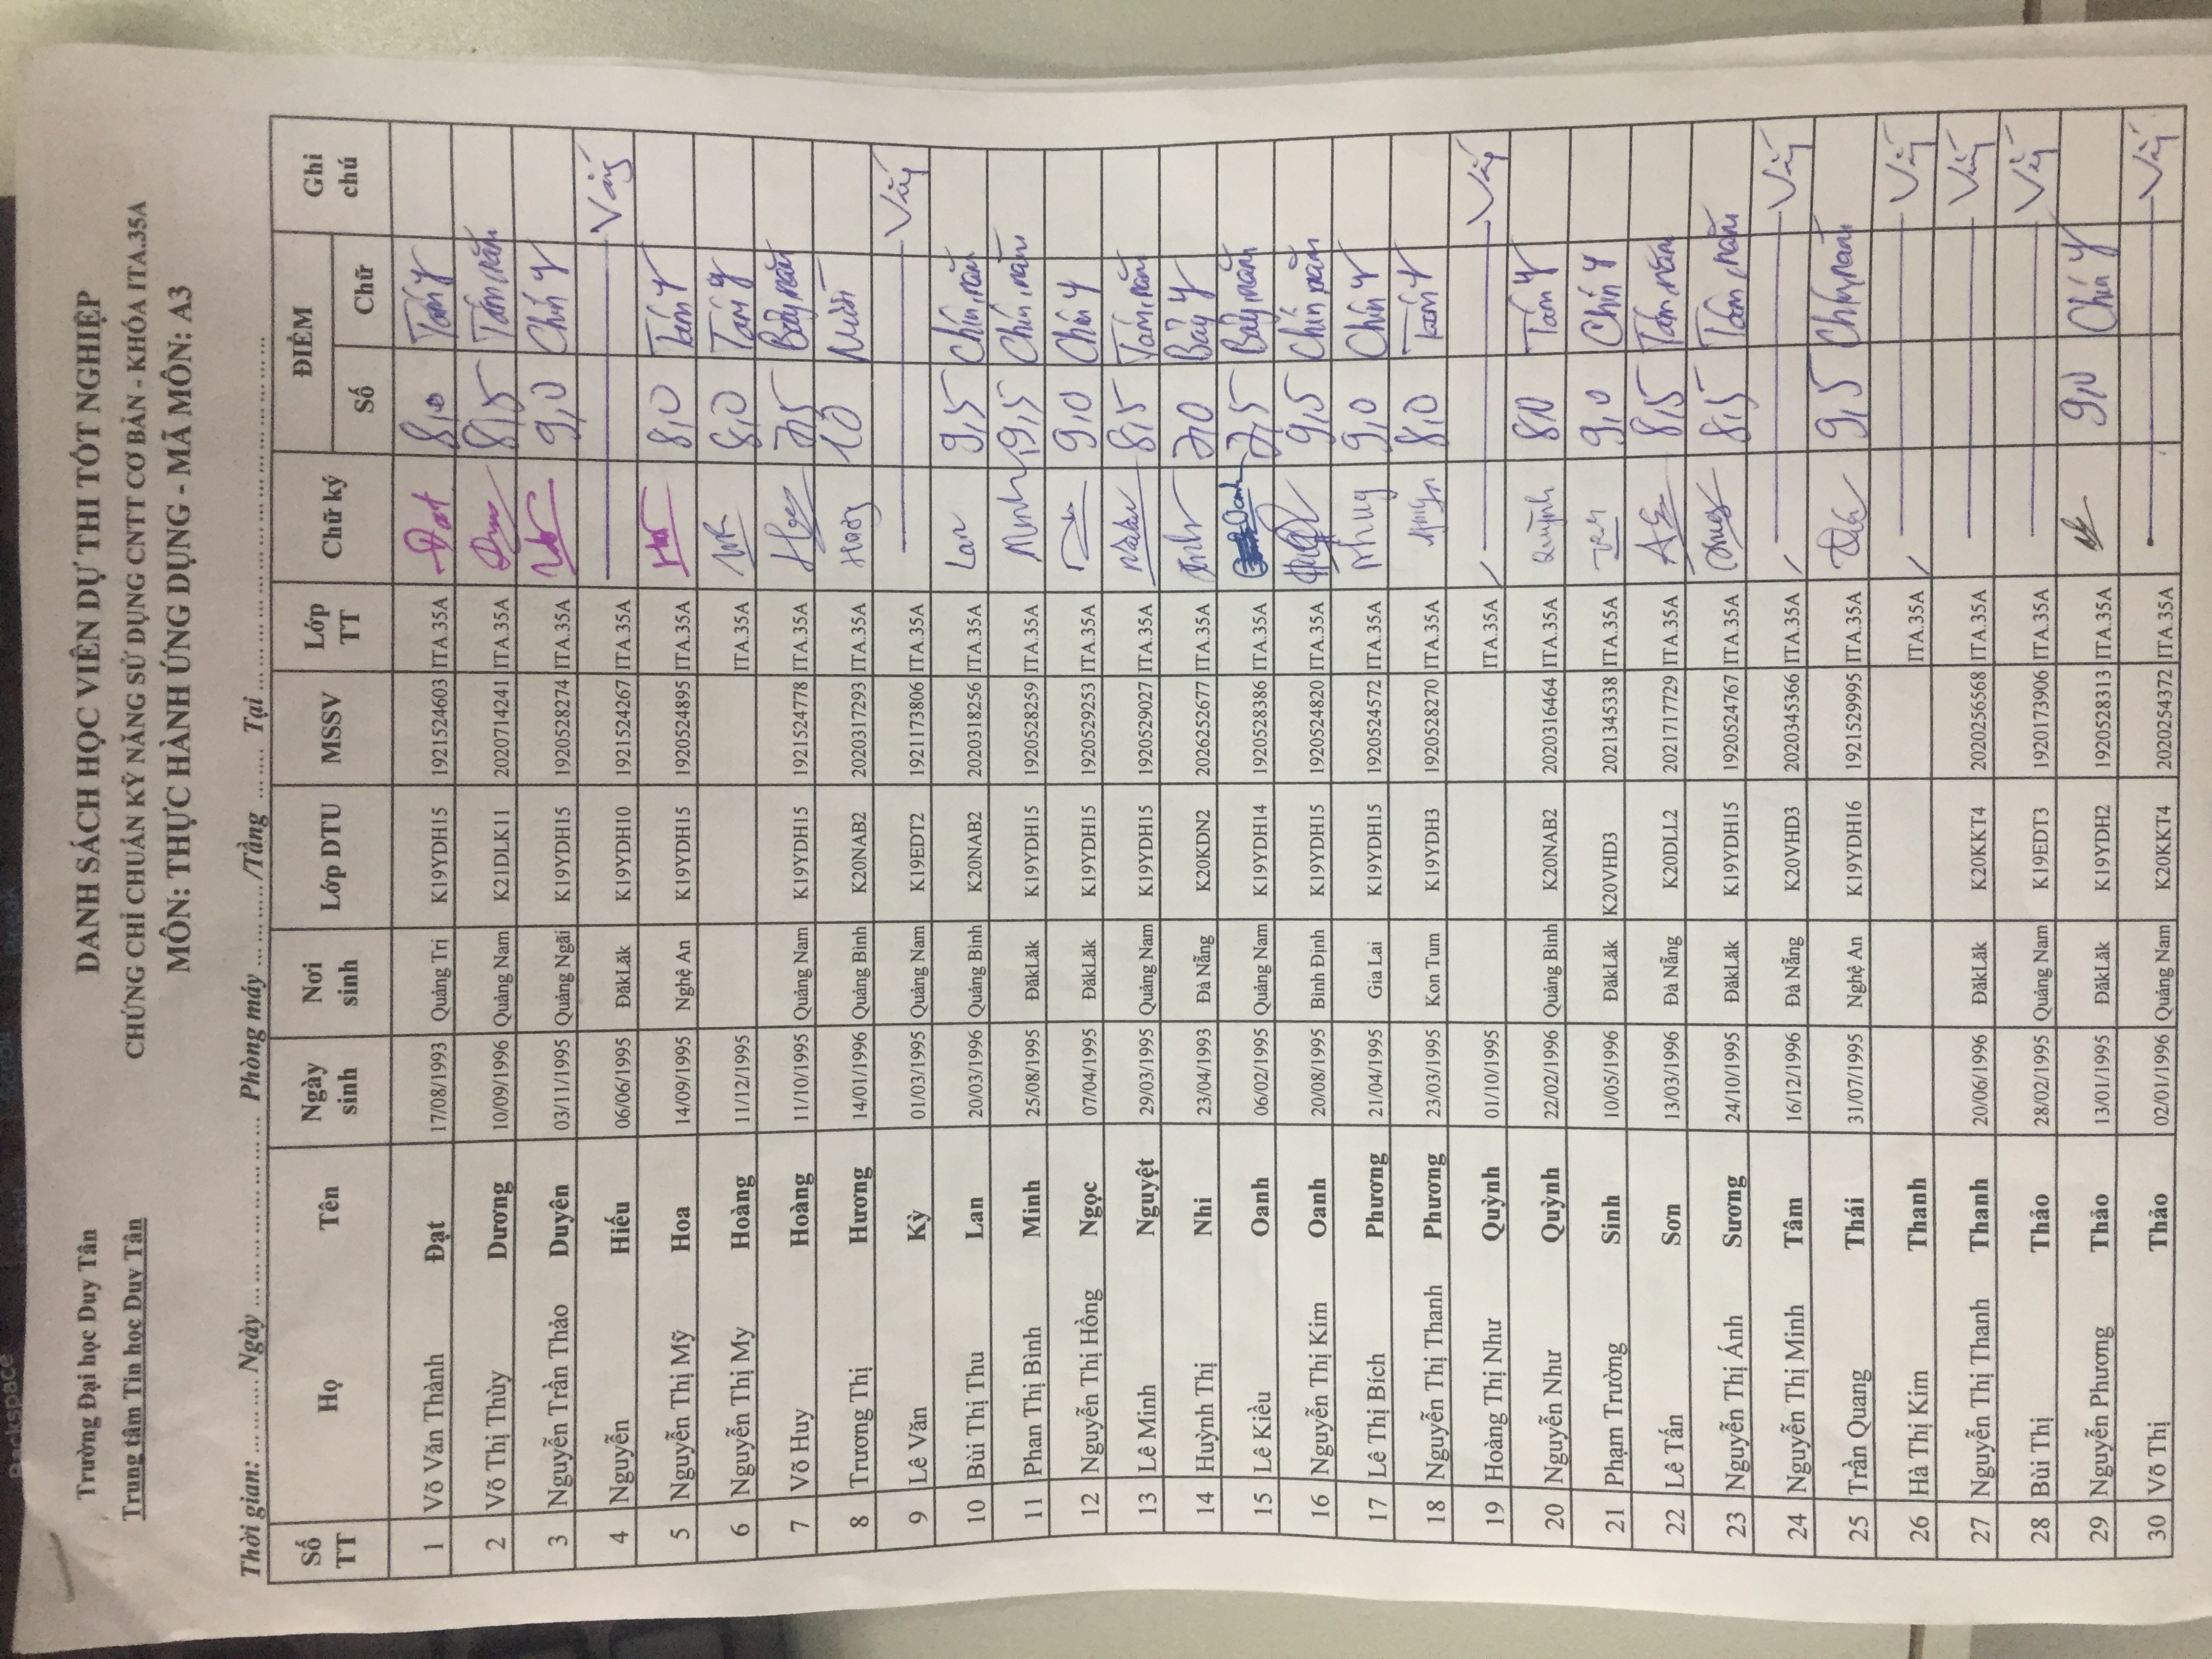 Trường Đại học Duy Tân
Trung tâm Tin học Duy Tân
DANH SÁCH HỌC VIÊN DỰ THI TỐT NGHIỆP
CHỨNG CHỈ CHUẨN KỸ NĂNG SỬ DỤNG CNTT CƠ BẢN - KHÓA ITA.35A
MÔN: THỰC HÀNH ỨNG DỤNG - MÃ MÔN: A3
Thời gian: ............ Ngày ........................ Phòng máy ............/Tầng ......... Tại ...........................
Số TT Họ Tên Ngày sinh Nơi sinh Lớp DTU MSSV Lớp TT Chữ ký ĐIỂM Số Chữ Ghi chú
1 Võ Văn Thành Đạt 17/08/1993 Quảng Trị K19YDH15 1921524603 ITA.35A Đạt 8,0 Tám y
2 Võ Thị Thùy Dương 10/09/1996 Quảng Nam K21DLK11 2020714241 ITA.35A 8,5 Tám,năm
3 Nguyễn Trần Thảo Duyên 03/11/1995 Quảng Ngãi K19YDH15 1920528274 ITA.35A 9,0 Chín y
4 Nguyễn Hiếu 06/06/1995 ĐăkLăk K19YDH10 1921524267 ITA.35A Vắng
5 Nguyễn Thị Mỹ Hoa 14/09/1995 Nghệ An K19YDH15 1920524895 ITA.35A Hoa 8,0 Tám y
6 Nguyễn Thị My Hoàng 11/12/1995 ITA.35A 8,0 Tám y
7 Võ Huy Hoàng 11/10/1995 Quảng Nam K19YDH15 1921524778 ITA.35A 7,5 Bảy,năm
8 Trương Thị Hương 14/01/1996 Quảng Bình K20NAB2 2020317293 ITA.35A Hương 10 Mười
9 Lê Văn Kỳ 01/03/1995 Quảng Nam K19EDT2 1921173806 ITA.35A Vắng
10 Bùi Thị Thu Lan 20/03/1996 Quảng Bình K20NAB2 2020318256 ITA.35A Lan 9,5 Chín,năm
11 Phan Thị Bình Minh 25/08/1995 ĐăkLăk K19YDH15 1920528259 ITA.35A Minh 9,5 Chín,năm
12 Nguyễn Thị Hồng Ngọc 07/04/1995 ĐăkLăk K19YDH15 1920529253 ITA.35A 9,0 Chín y
13 Lê Minh Nguyệt 29/03/1995 Quảng Nam K19YDH15 1920529027 ITA.35A 8,5 Tám,năm
14 Huỳnh Thị Nhi 23/04/1993 Đà Nẵng K20KDN2 2026252677 ITA.35A 7,0 Bảy y
15 Lê Kiều Oanh 06/02/1995 Quảng Nam K19YDH14 1920528386 ITA.35A Oanh 7,5 Bảy,năm
16 Nguyễn Thị Kim Oanh 20/08/1995 Bình Định K19YDH15 1920524820 ITA.35A 9,5 Chín,năm
17 Lê Thị Bích Phương 21/04/1995 Gia Lai K19YDH15 1920524572 ITA.35A 9,0 Chín y
18 Nguyễn Thị Thanh Phương 23/03/1995 Kon Tum K19YDH3 1920528270 ITA.35A 8,0 Tám y
19 Hoàng Thị Như Quỳnh 01/10/1995 ITA.35A Vắng
20 Nguyễn Như Quỳnh 22/02/1996 Quảng Bình K20NAB2 2020316464 ITA.35A Quỳnh 8,0 Tám y
21 Phạm Trường Sinh 10/05/1996 ĐăkLăk K20VHD3 2021345338 ITA.35A 9,0 Chín y
22 Lê Tấn Sơn 13/03/1996 Đà Nẵng K20DLL2 2021717729 ITA.35A 8,5 Tám,năm
23 Nguyễn Thị Ánh Sương 24/10/1995 ĐăkLăk K19YDH15 1920524767 ITA.35A 8,5 Tám,năm
24 Nguyễn Thị Minh Tâm 16/12/1996 Đà Nẵng K20VHD3 2020345366 ITA.35A Vắng
25 Trần Quang Thái 31/07/1995 Nghệ An K19YDH16 1921529995 ITA.35A 9,5 Chín,năm
26 Hà Thị Kim Thanh ITA.35A Vắng
27 Nguyễn Thị Thanh Thanh 20/06/1996 ĐăkLăk K20KKT4 2020256568 ITA.35A Vắng
28 Bùi Thị Thảo 28/02/1995 Quảng Nam K19EDT3 1920173906 ITA.35A Vắng
29 Nguyễn Phương Thảo 13/01/1995 ĐăkLăk K19YDH2 1920528313 ITA.35A 9,0 Chín y
30 Võ Thị Thảo 02/01/1996 Quảng Nam K20KKT4 2020254372 ITA.35A Vắng
Backspace